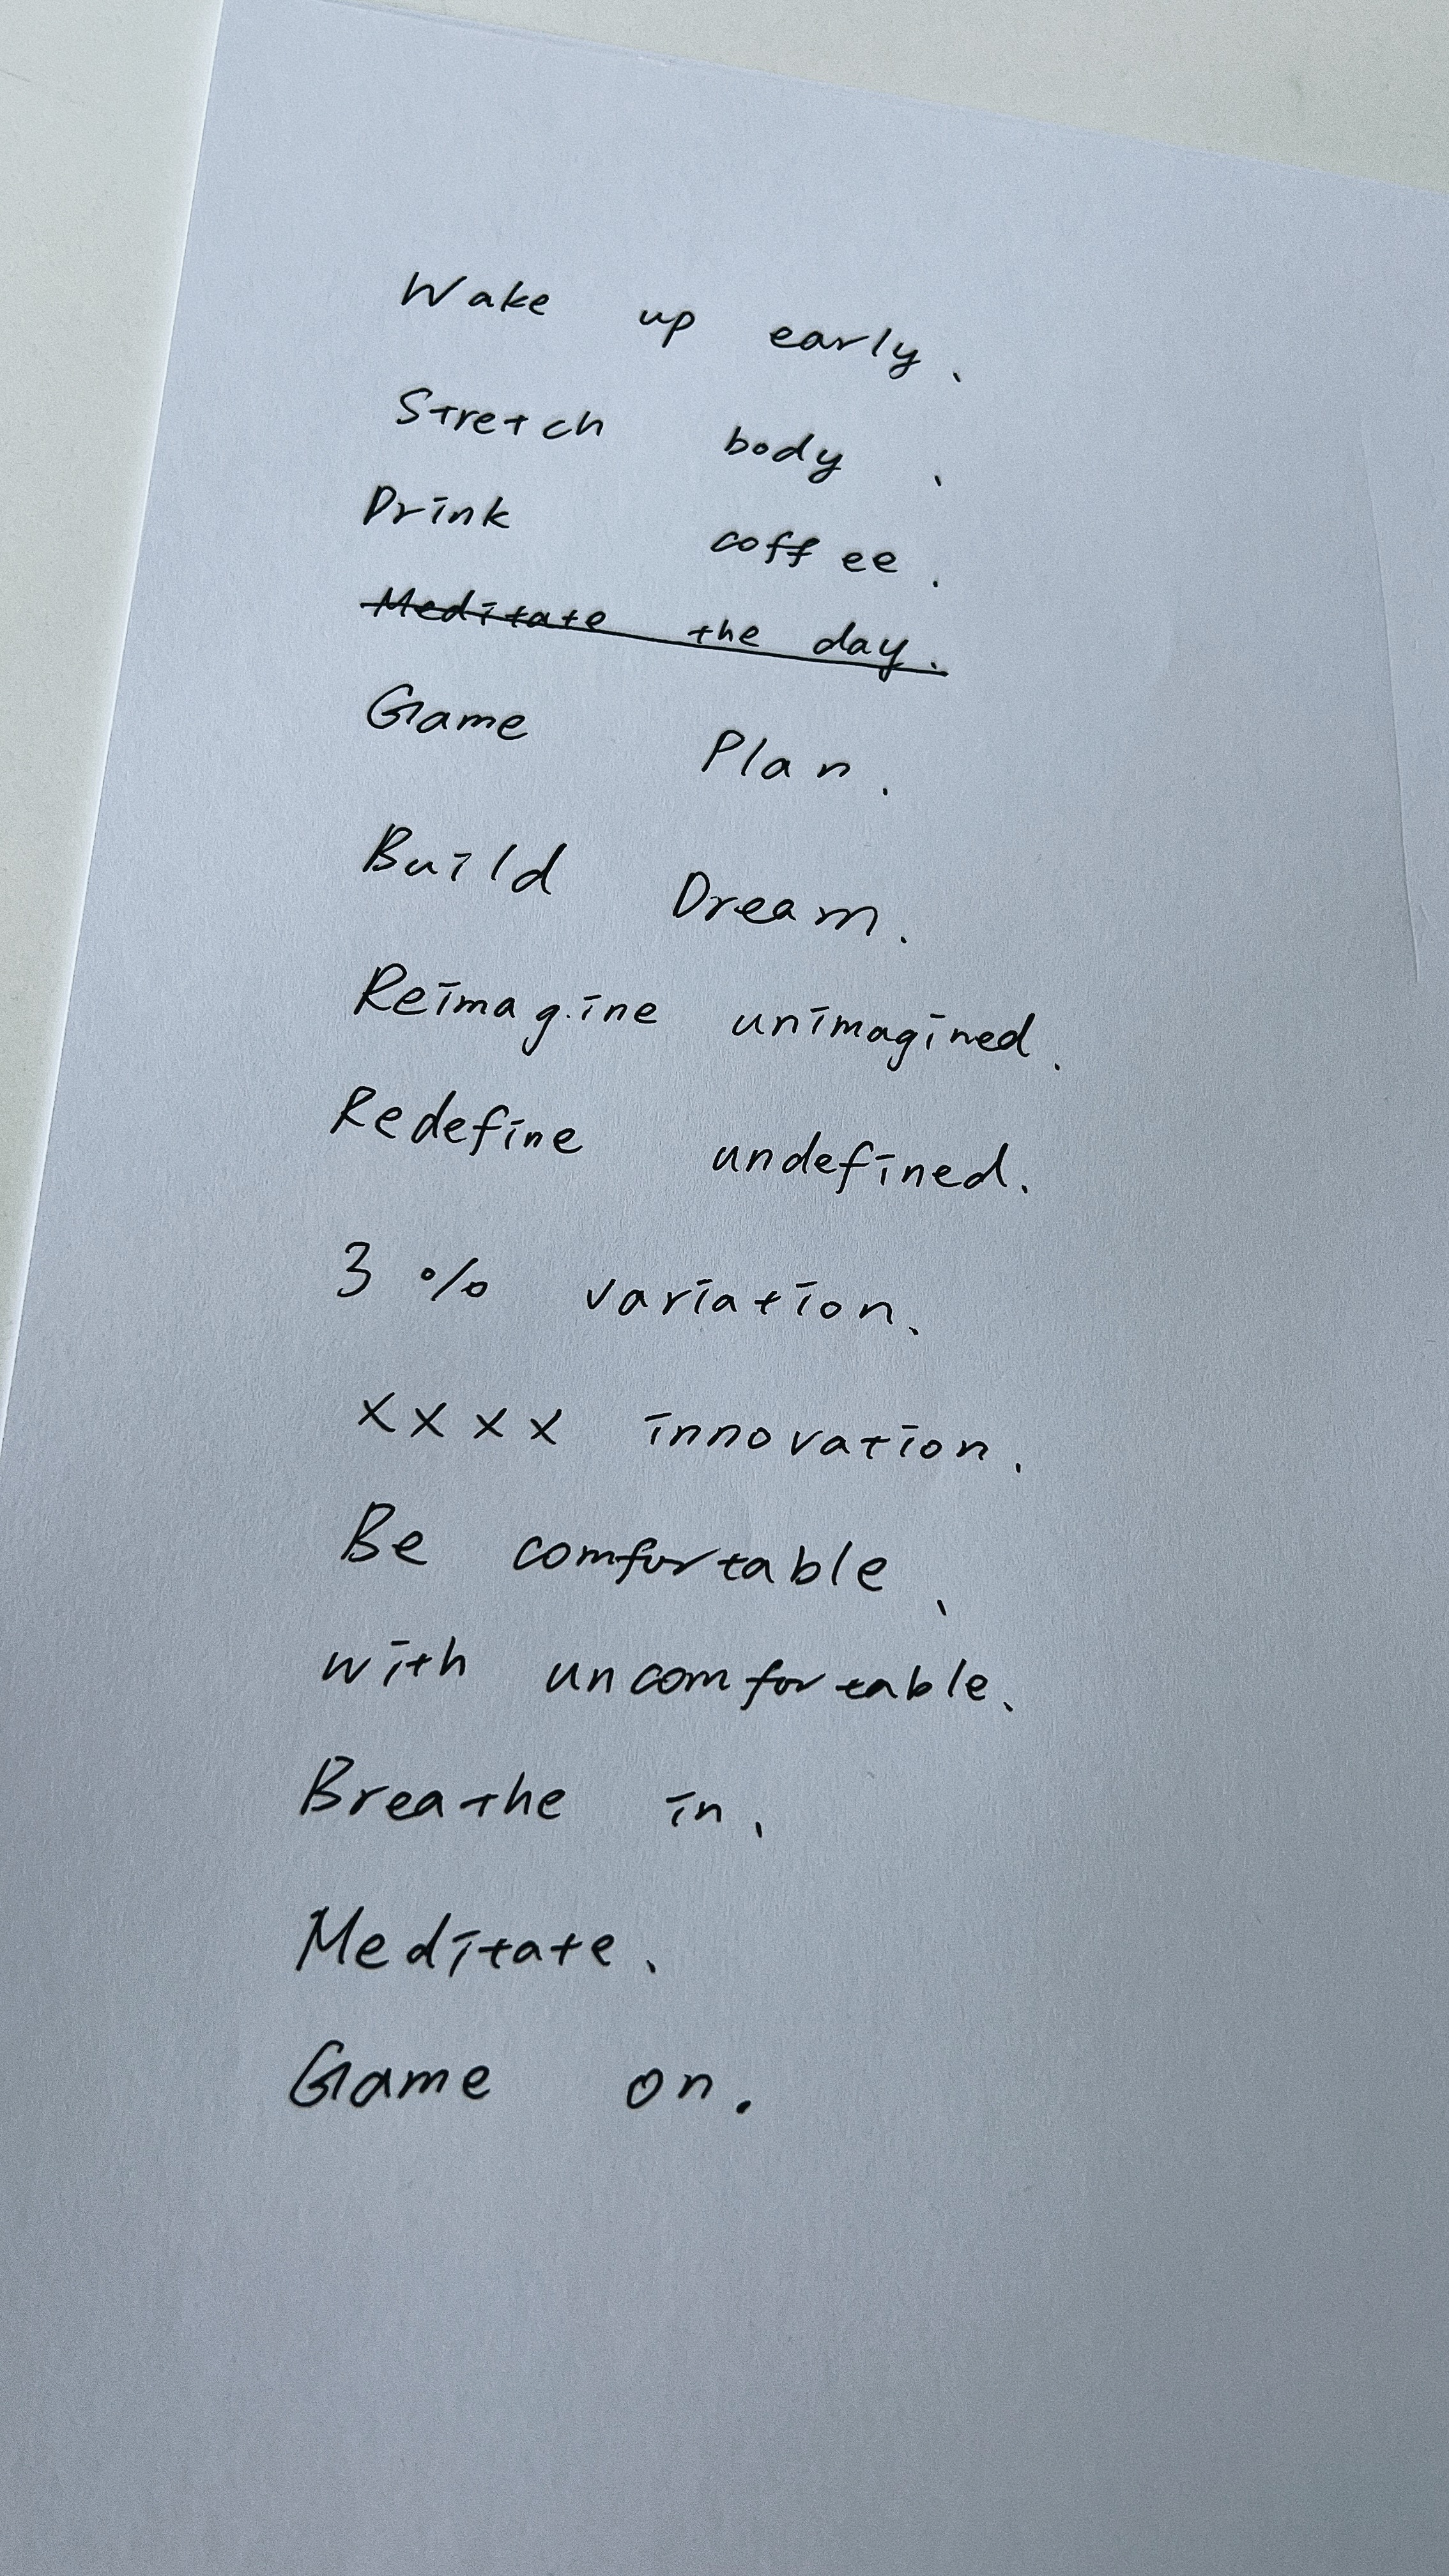 Wake up early.
Stretch body.
Drink coffee.
Meditate the day.
Game Plan.
Build Dream.
Reimagine unimagined.
Redefine undefined.
3% variation.
xxxx innovation.
Be comfortable,
with uncomfortable.
Breathe in.
Meditate.
Game on.